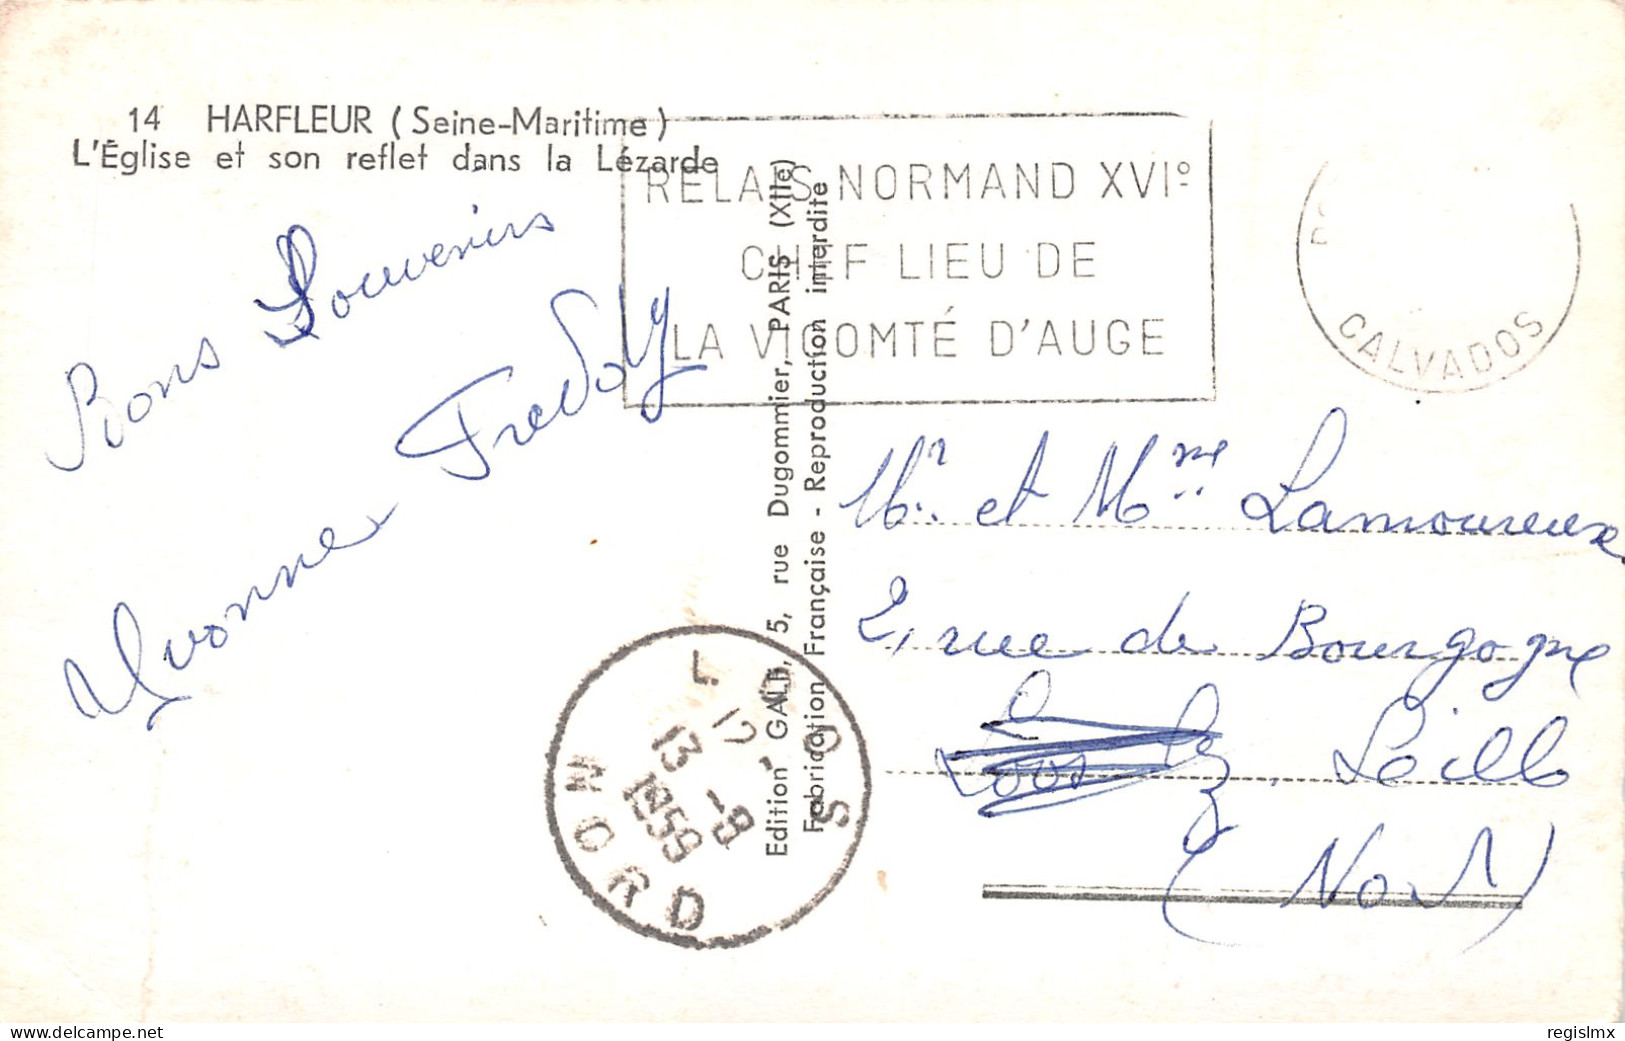 14 HARFLEUR (Seine-Maritime)
L'Église et son reflet dans la Lézarde
Bons Souvenirs
Yvonne Fredoly
RELAIS NORMAND XVI°
CHEF LIEU DE
LA VICOMTÉ D'AUGE
CALVADOS
Edition GABY, 5, rue Dugommier, PARIS (XIIe)
Fabrication Française - Reproduction interdite
LOOS
17 -
13 -9
1959
NORD
Mr et Mme Lamoureux
2, rue de Bourgogne
Loos lez Lille
(Nord)
www.delcampe.net
regislmx